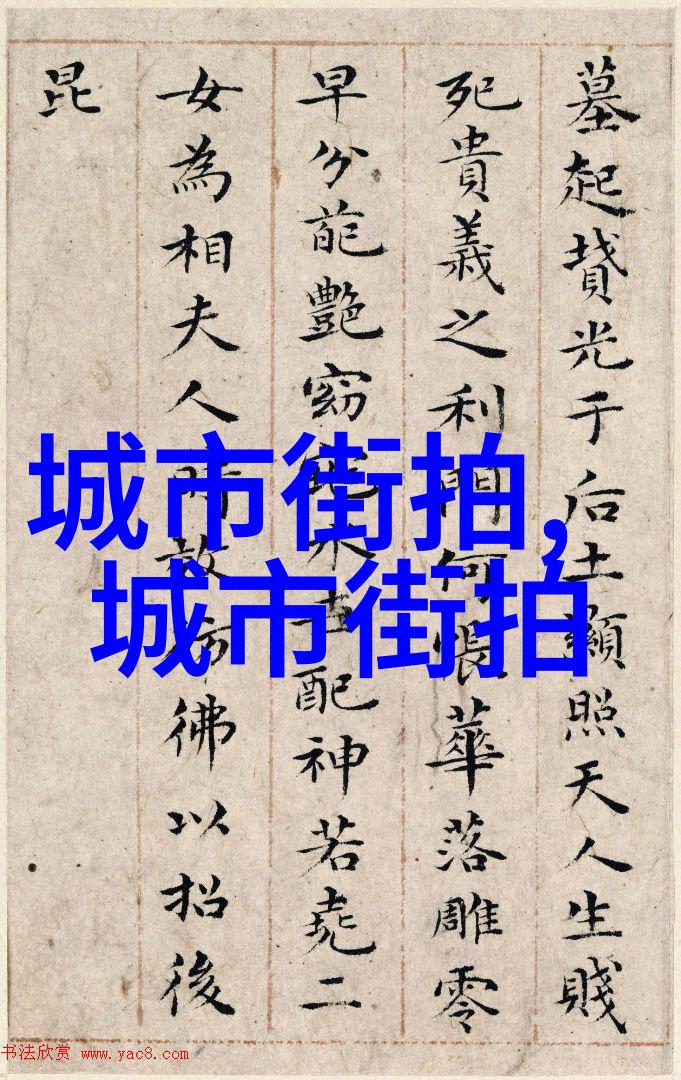 墓起墳光于后土顯照天人生賤
死貴義之利門何悵華落雕零
早分葩艷窈窕永世配神若堯二
女為相夫人時效彷彿以招後
昆
城市街拍,
城市街拍
书法欣赏 www.yac8.com